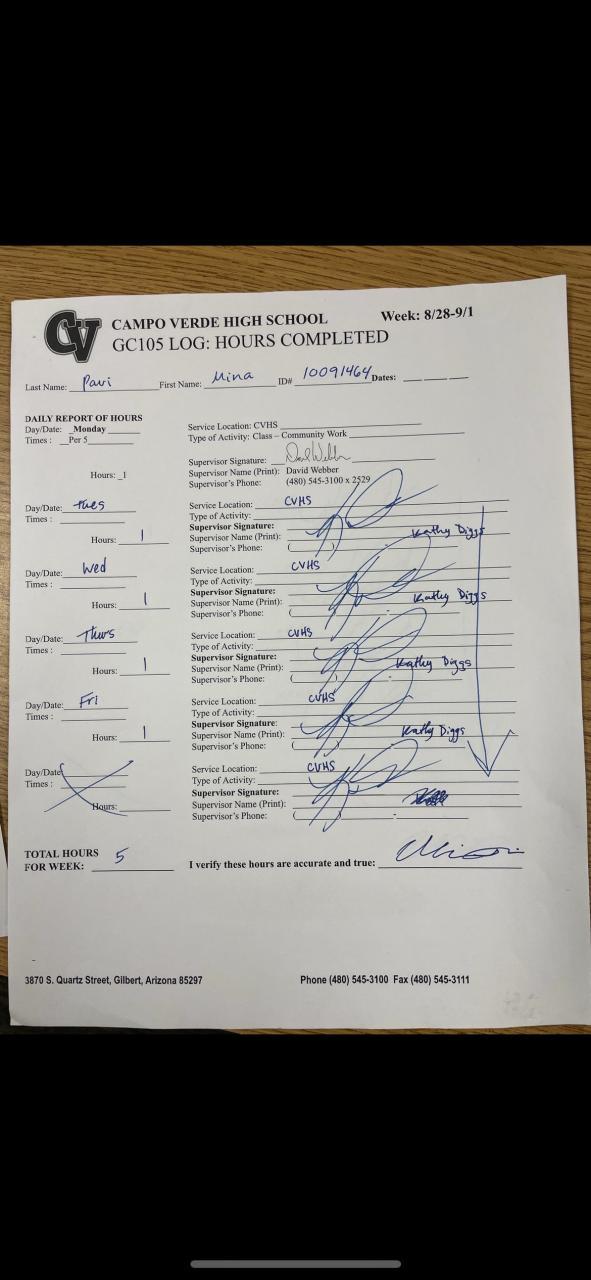 CV
CAMPO VERDE HIGH SCHOOL Week: 8/28-9/1
GC105 LOG: HOURS COMPLETED
Last Name: Pavi First Name: Mina ID# 10091464 Dates:
DAILY REPORT OF HOURS
Day/Date: Monday Service Location: CVHS
Times : Per 5 Type of Activity: Class – Community Work
Supervisor Signature:
Hours: 1 Supervisor Name (Print): David Webber
Supervisor's Phone: (480) 545-3100 x 2529
Day/Date: tues Service Location: CVHS
Times : Type of Activity:
Supervisor Signature:
Hours: 1 Supervisor Name (Print): Kathy Diggs
Supervisor's Phone: ( ) -
Day/Date: Wed Service Location: CVHS
Times : Type of Activity:
Supervisor Signature:
Hours: 1 Supervisor Name (Print): Kathy Diggs
Supervisor's Phone: ( ) -
Day/Date: Thurs Service Location: CVHS
Times : Type of Activity:
Supervisor Signature:
Hours: 1 Supervisor Name (Print): Kathy Diggs
Supervisor's Phone: ( ) -
Day/Date: Fri Service Location: CVHS
Times : Type of Activity:
Supervisor Signature:
Hours: 1 Supervisor Name (Print): Kathy Diggs
Supervisor's Phone: ( ) -
Day/Date: Service Location: CVHS
Times : Type of Activity:
Supervisor Signature:
Hours: Supervisor Name (Print):
Supervisor's Phone: ( ) -
TOTAL HOURS
FOR WEEK: 5 I verify these hours are accurate and true:
3870 S. Quartz Street, Gilbert, Arizona 85297 Phone (480) 545-3100 Fax (480) 545-3111